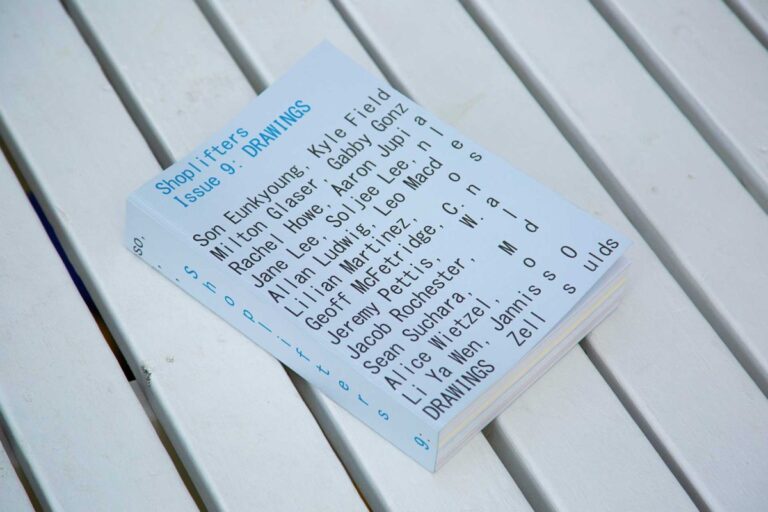 Shoplifters
Issue 9: DRAWINGS
Son Eunkyoung, Kyle Field
Milton Glaser, Gabby Gonz
Rachel Howe, Aaron Jupi a
Jane Lee, Soljee Lee, n l
Allan Ludwig, Leo Macd e
Lilian Martinez, o s
Geoff McFetridge, C. n
Jeremy Pettis, W. a
Jacob Rochester, l
Sean Suchara, M d
Alice Wietzel, o
Li Ya Wen, Jannis s O
DRAWINGS Zell s oulds
so,
shoplifters
9: